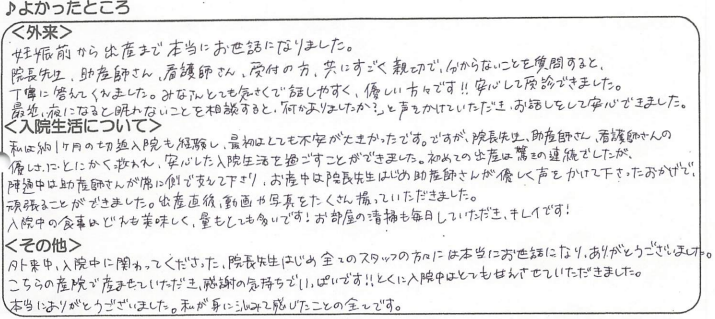 ♪よかったところ
＜外来＞
妊娠前から出産まで本当にお世話になりました。
院長先生、助産師さん、看護師さん、受付の方、共にすごく親切で、分からないことを質問すると、
丁寧に答えてくれました。みなさんとても気さくで話しやすく、優しい方々です!! 安心して受診できました。
最近、夜になると眠れないことを相談すると、「何かありましたか?」と声をかけていただき、お話しをして安心できました。
＜入院生活について＞
私は約1ヶ月の切迫入院も経験し、最初はとても不安が大きかったです。ですが、院長先生、助産師さん、看護師さんの
優しさにとにかく救われ、安心した入院生活を過ごすことができました。初めての出産は驚きの連続でしたが、
陣痛中は助産師さんが常に側で支えて下さり、お産中は院長先生はじめ助産師さんが優しく声をかけて下さったおかげで、
頑張ることができました。出産直後、動画や写真をたくさん撮っていただきました。
入院中の食事はどれも美味しく、量もとても多いです! お部屋の清掃も毎日していただき、キレイです!
＜その他＞
外来中、入院中に関わってくださった、院長先生はじめ全てのスタッフの方々には本当にお世話になり、ありがとうございました。
こちらの産院で産ませていただき、感謝の気持ちでいっぱいです!! とくに入院中はとても させていただきました。
本当にありがとうございました。私が身に沁みて感じたことの全てです。